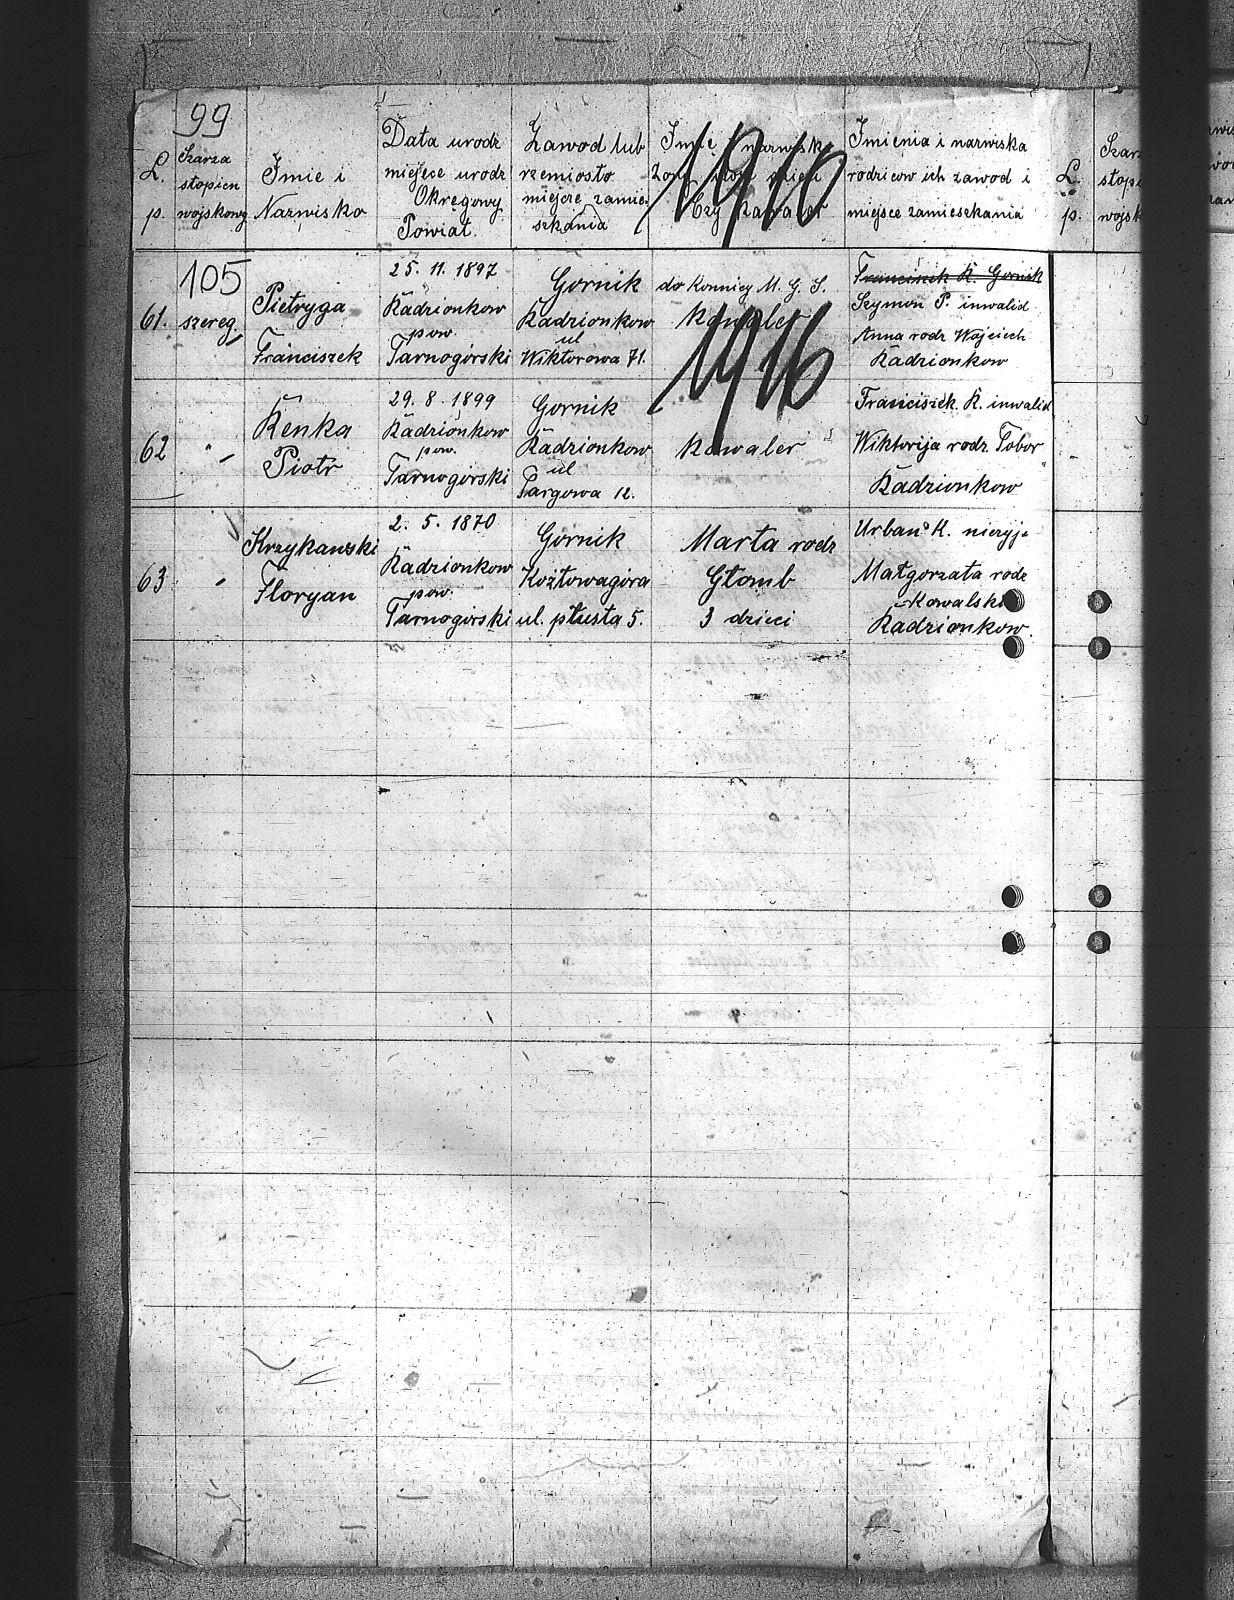 99
L. p.
Szarza
stopien
wojskowy
Imie i
Nazwisko
Data urodz
miejsce urodz
Okręgowy
Powiat.
Zawod lub
rzemiosto
miejsce zamie-
szkania
Imie i nazwisko
Zony
Czy Kawaler
1910
Imienia i nazwiska
rodzicow ich zawod i
miejsce zamieszkania
L. p.
105
61.
szereg.
Pietryga
Franciszek
25. 11. 1897
Radzionkow
pow
Tarnogórski
Gornik
Radzionkow
ul
Wiktorowa 71.
do Konnicy M. G. S.
Kawaler
1916
Franciszek K. Gornik
Szymon P. inwalid
Anna rodz Wojciech
Radzionkow
62
"
Kenka
Piotr
29. 8. 1899
Radzionkow
pow.
Tarnogórski
Gornik
Radzionkow
ul
Targowa 12.
Kawaler
Franciszek K. inwalid
Wiktorija rodz. Tobor
Radzionkow
63
"
Krzykawski
Floryan
2. 5. 1870
Radzionkow
pow.
Tarnogorski
Gornik
Kozłowagóra
ul. płusta 5.
Marta rodz
Głomb
3 dzieci
Urban K. niezyje
Małgorzata rodz
Kowalski
Radzionkow.